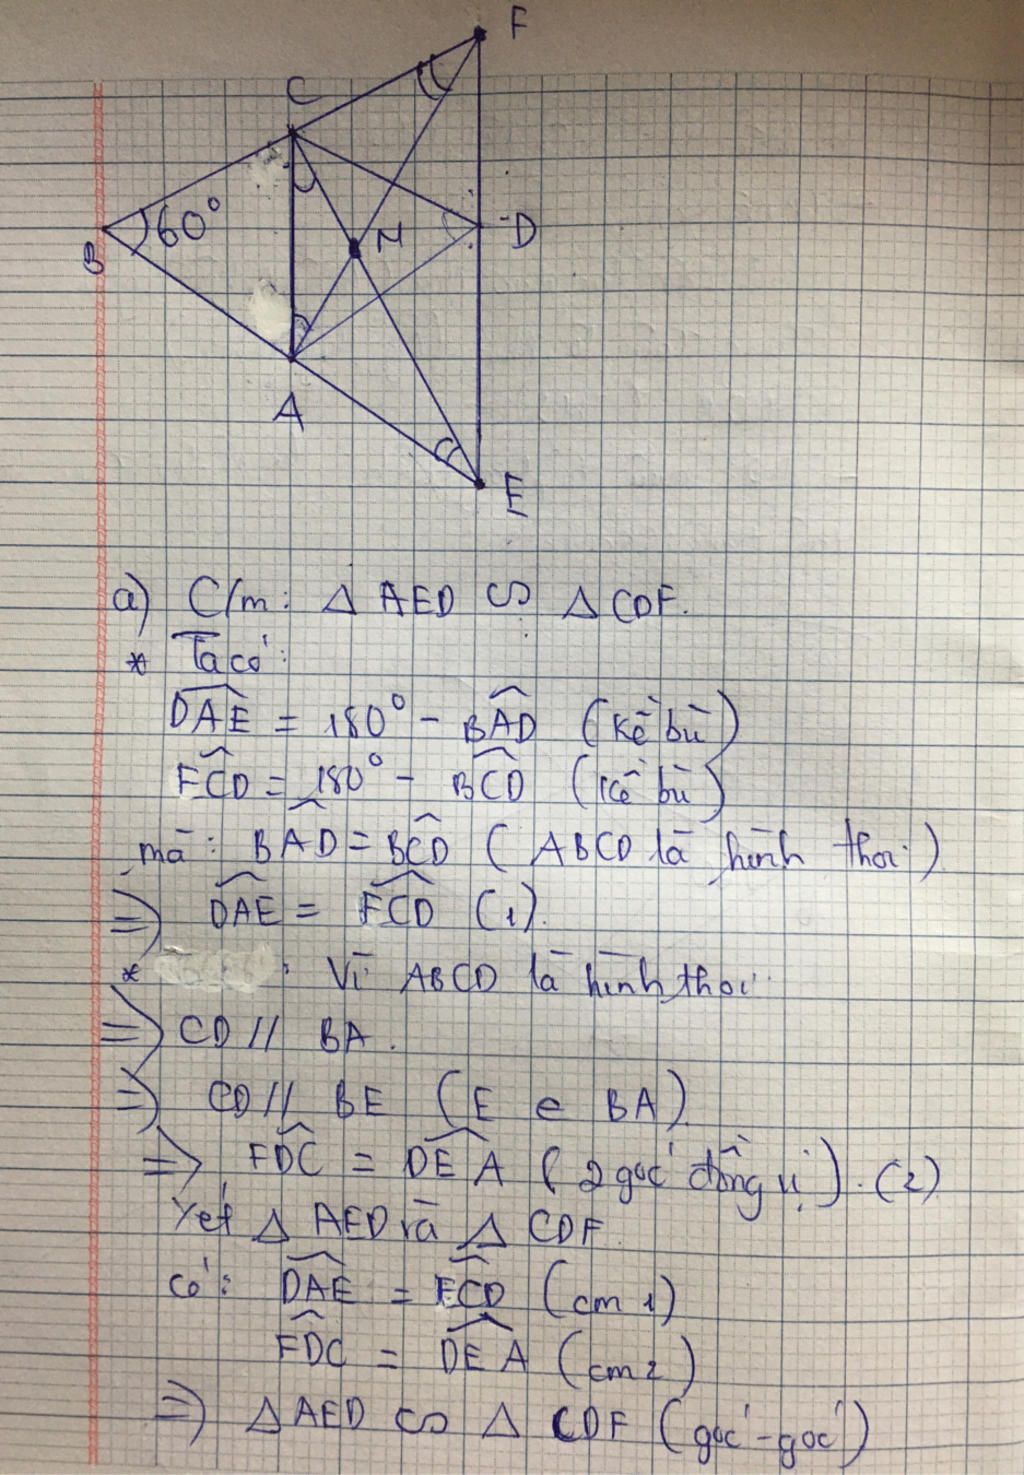 F
C
B 60°
M
D
A
E
a) C/m: Δ AED ∽ Δ CDF.
* Ta có:
DAE = 180° - BAD (kề bù)
FCD = 180° - BCD (kề bù)
mà: BAD = BCD ( ABCD là hình thoi )
=> DAE = FCD (1).
* : Vì ABCD là hình thoi
=> CD // BA.
=> CD // BE (E e BA)
=> FDC = DEA ( 2 góc đồng vị ). (2)
Xét Δ AED và Δ CDF.
có: DAE = FCD (cm 1)
FDC = DEA (cm 2)
=> Δ AED ∽ Δ CDF (góc - góc)